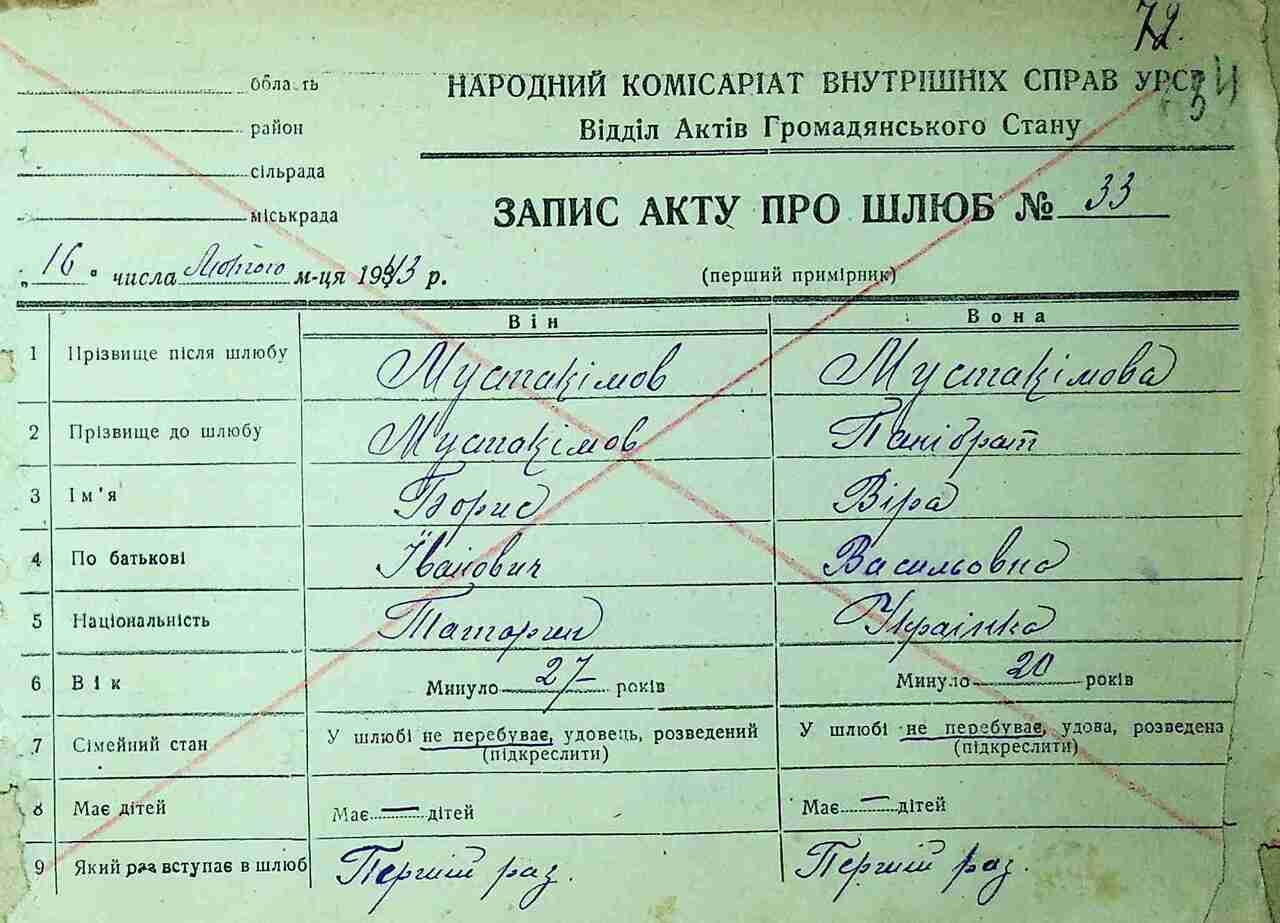 72.
34
Область
район
сільрада
міськрада
НАРОДНИЙ КОМІСАРІАТ ВНУТРІШНІХ СПРАВ УРСР
Відділ Актів Громадянського Стану
ЗАПИС АКТУ ПРО ШЛЮБ № 33
„16" числа Лютого м-ця 1943 р.
(перший примірник)
Він Вона
1 Прізвище після шлюбу Мустакімов Мустакімова
2 Прізвище до шлюбу Мустакімов Панібрат
3 Ім'я Борис Віра
4 По батькові Іванович Васильовна
5 Національність Татарин Українка
6 Вік Минуло 27 років Минуло 20 років
7 Сімейний стан У шлюбі не перебуває, удовець, розведений У шлюбі не перебуває, удова, розведена
(підкреслити) (підкреслити)
8 Має дітей Має — дітей Має — дітей
9 Який раз вступає в шлюб Перший раз. Перший раз.